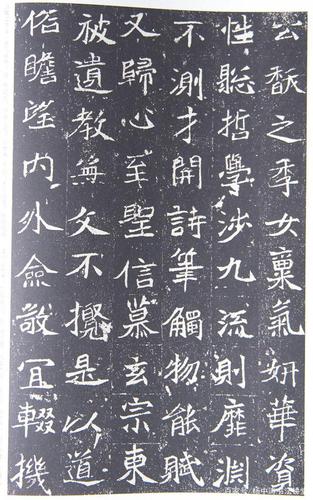 公猷之季女稟氣妍華資
性聡哲學涉九流則靡淵
不測才開詩筆觸物能賦
又歸心至聖信慕玄宗東
被遺教無文不攬是以道
俗瞻望內外僉敬冝輟機
百家号